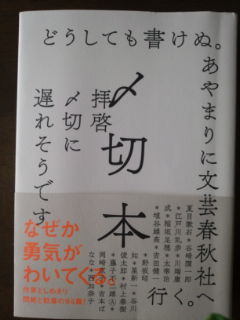 どうしても書けぬ。
あやまりに文芸春秋社へ
行く。
〆切本
拝啓
〆切に
遅れそうです
夏目漱石*谷崎潤一郎
*江戸川乱歩*川端康
成*稲垣足穂*太宰治
*埴谷雄高*吉田健一
*野坂昭
*星新一*谷川
俊太郎*村上春樹
*藤子不二雄Ⓐ
岡崎京子*吉本ば
なな*西加奈子
なぜか
勇気が
わいてくる。
作家としめきり